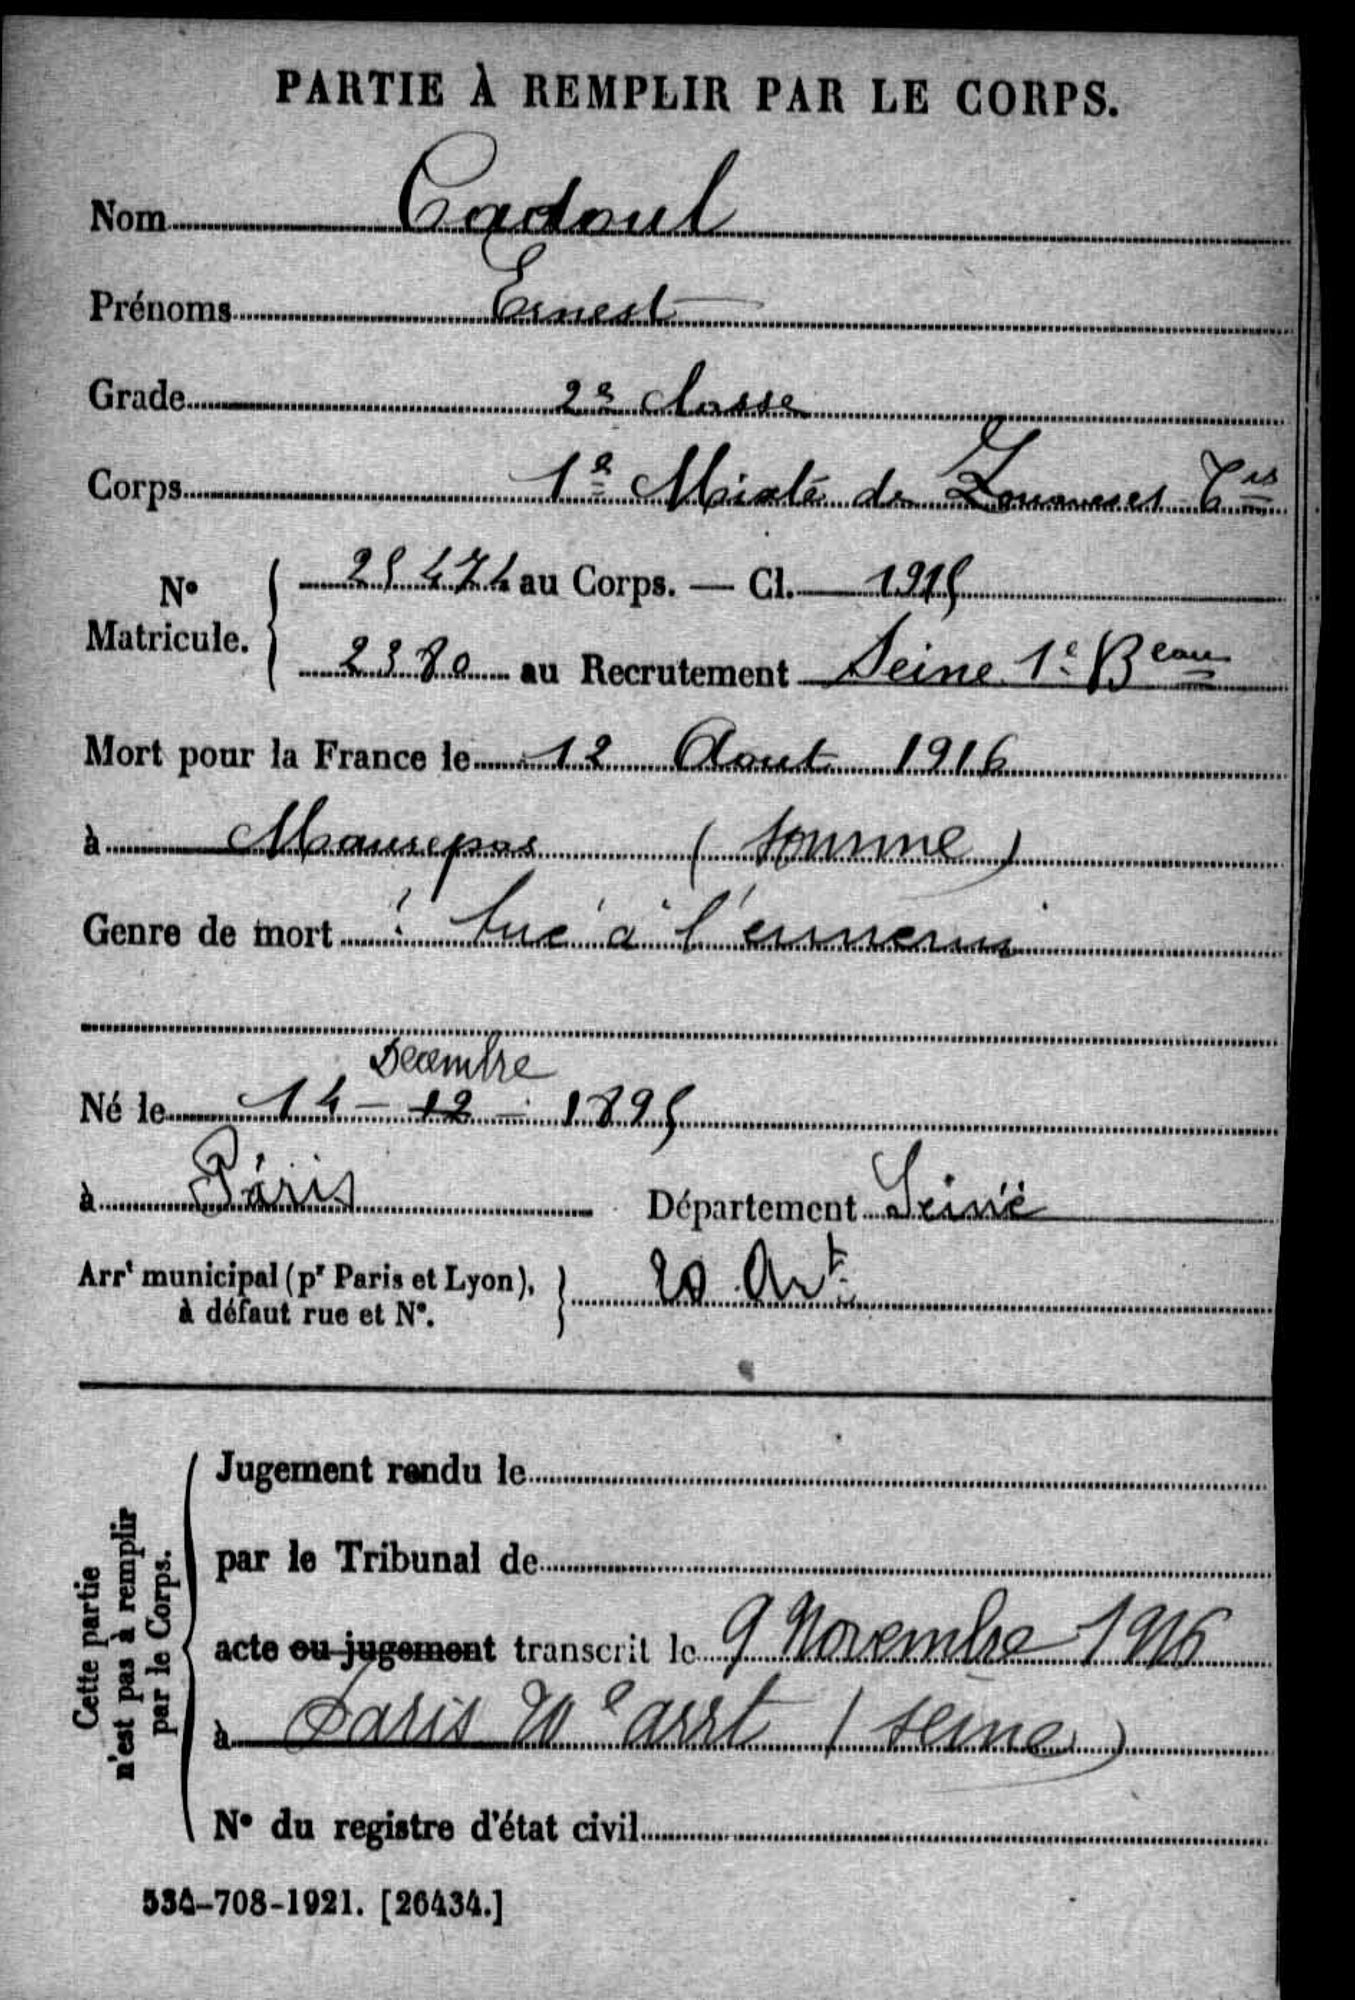 PARTIE À REMPLIR PAR LE CORPS.
Nom Cadoul
Prénoms Ernest
Grade 2e classe
Corps 1e Mixte de Zouaves Tirs
N° Matricule. au Corps. — Cl. 1915
2380 au Recrutement Seine 1e Beau
Mort pour la France le 12 Aout 1916
à Maurepas (Somme)
Genre de mort : tué à l'ennemi
Decembre
Né le 14 - 12 - 1895
à Paris Département Seine
Arrt municipal (pr Paris et Lyon), à défaut rue et N°. 20 Art
Cette partie n'est pas à remplir par le Corps.
Jugement rendu le
par le Tribunal de
acte ou jugement transcrit le 9 Novembre 1916
à Paris 20e arrt (Seine)
N° du registre d'état civil
534-708-1921. [26434.]